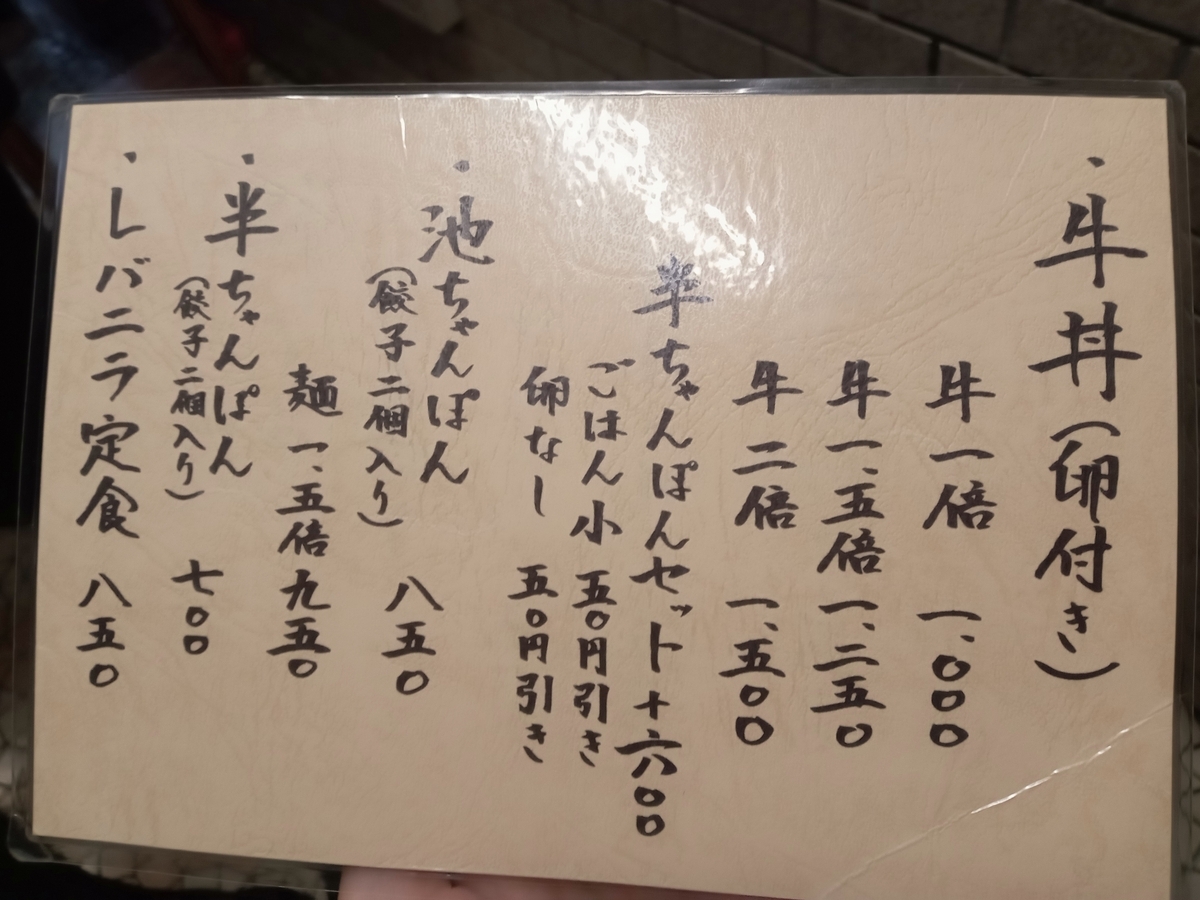 ・牛丼(卵付き)
牛一倍 一、〇〇〇
牛一、五倍 一、二五〇
牛二倍 一、五〇〇
半ちゃんぽんセット+六〇〇
ごはん小 五〇円引き
卵なし 五〇円引き
・池ちゃんぽん
(餃子二個入り) 八五〇
麺一、五倍 九五〇
・半ちゃんぽん
(餃子二個入り) 七〇〇
・レバニラ定食 八五〇